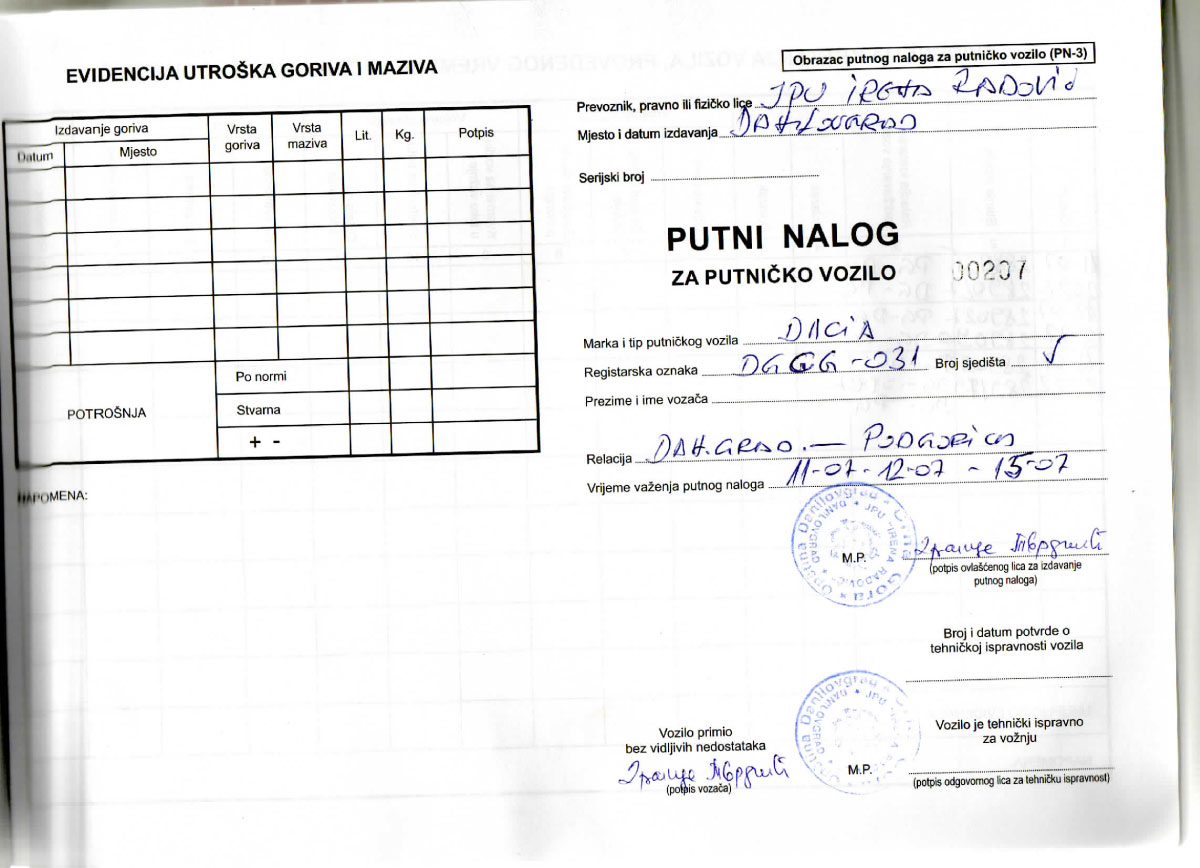 EVIDENCIJA UTROŠKA GORIVA I MAZIVA
Izdavanje goriva
Datum
Mjesto
Vrsta goriva
Vrsta maziva
Lit.
Kg.
Potpis
POTROŠNJA
Po normi
Stvarna
+ -
NAPOMENA:
Obrazac putnog naloga za putničko vozilo (PN-3)
Prevoznik, pravno ili fizičko lice JPU IRENA RADOVIĆ
Mjesto i datum izdavanja DANILOVGRAD
Serijski broj
PUTNI NALOG
ZA PUTNIČKO VOZILO 00207
Marka i tip putničkog vozila DACIA
Registarska oznaka DG CG-031 Broj sjedišta
Prezime i ime vozača
Relacija DAN.GRAD. — PODGORICA
Vrijeme važenja putnog naloga 11-07-12-07 - 15-07
Opština Danilovgrad Crna Gora
JPU "IRENA RADOVIĆ" DANILOVGRAD
M.P.
(potpis ovlašćenog lica za izdavanje
putnog naloga)
Broj i datum potvrde o
tehničkoj ispravnosti vozila
Vozilo primio
bez vidljivih nedostataka
(potpis vozača)
M.P.
Vozilo je tehnički ispravno
za vožnju
(potpis odgovornog lica za tehničku ispravnost)